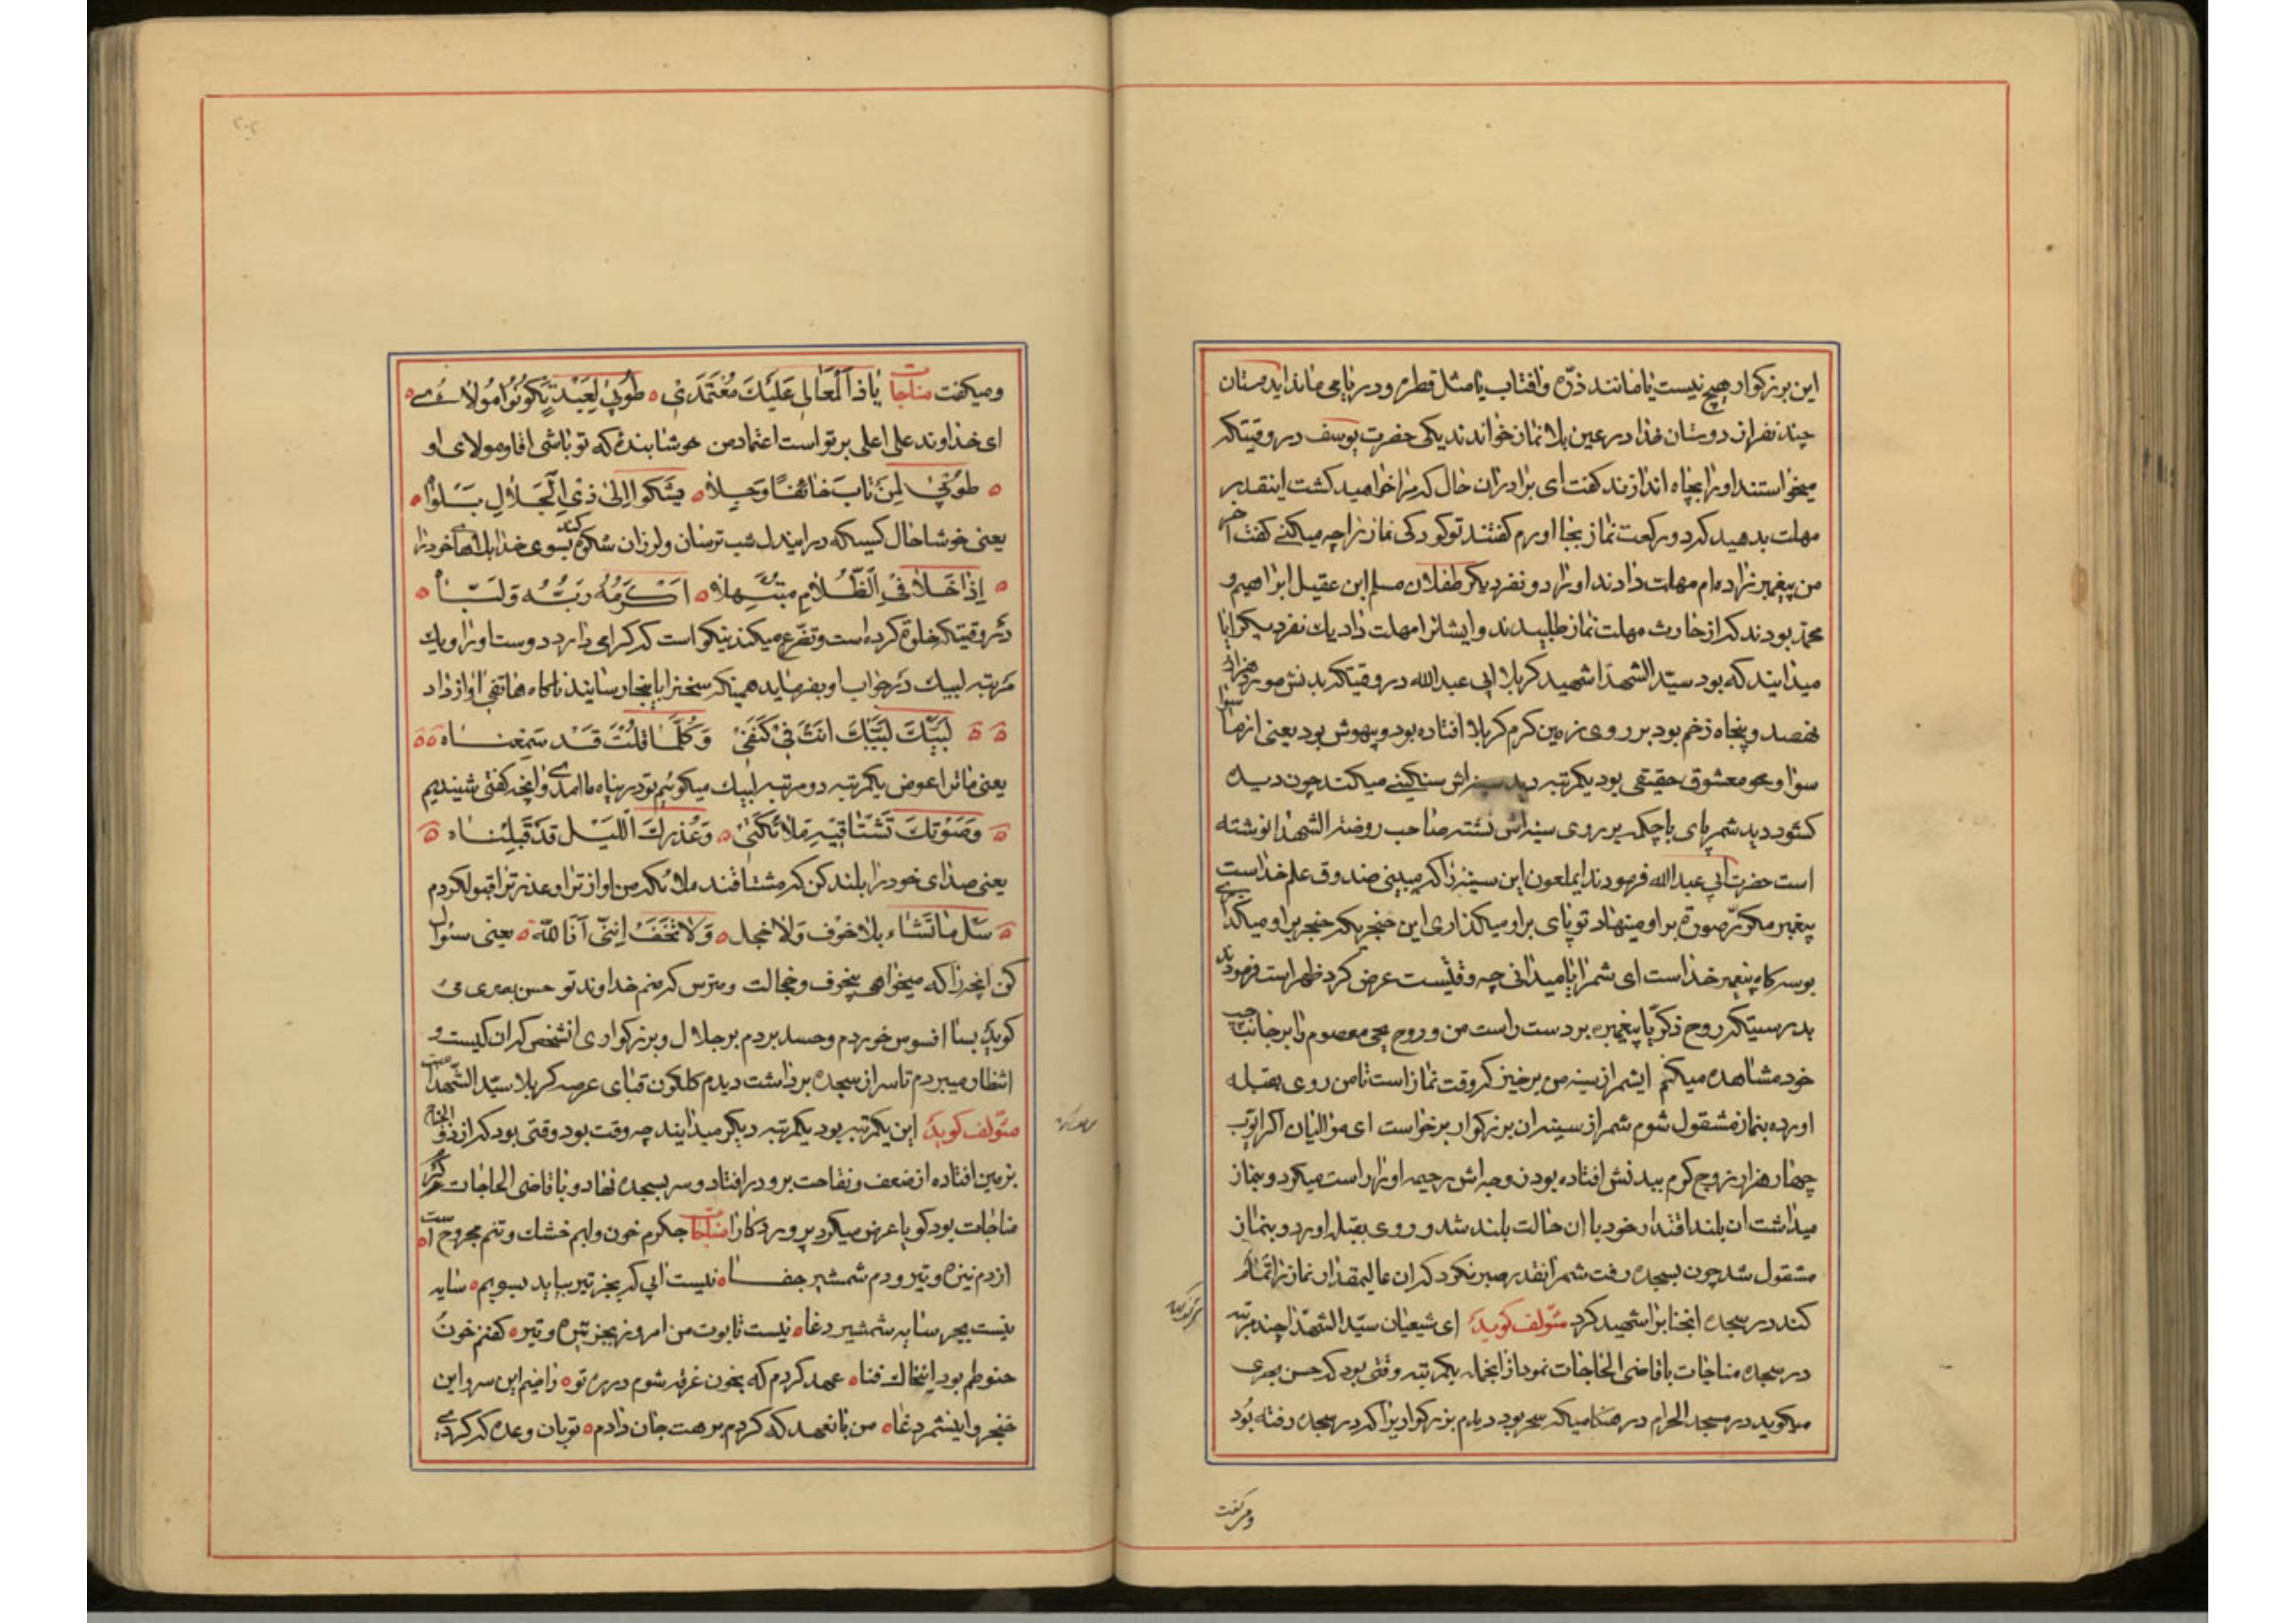 این بزرکوار هیچ نیست یا مانند ذرّه وافتاب یا مثل قطره و دریا می ماند ایدوستان
چند نفر از دوستان خدا در عین بلا نماز خواندند یکی حضرت یوسف در وقتیکه
میخواستند اورا بچاه اندازند کفت ای برادران حال که مرا خواهید کشت اینقدر
مهلت بدهید که دو رکعت نماز بجا اورم کفتند تو کودکی نماز را چه میکنی کفت اخر
من پیغمبر زاده ام مهلت دادند اورا دو نفر دیکر طفلان مسلم ابن عقیل ابراهیم و
محمّد بودند که از حارث مهلت نماز طلبیدند وایشانرا مهلت داد یك نفر دیکر ایا
میدانید که بود سیّد الشهدا شهید کربلا ابی عبدالله در وقتیکه بدنش مورد هزار و
نهصد و پنجاه زخم بود بر روی زمین کرم کربلا افتاده بود و بیهوش بود یعنی از ما
سوا و محو معشوق حقیقی بود یکمرتبه دید سینه اش سنکینی میکند چون دیده
کشود دید شمر پای با چکمه بر روی سینه اش نشسته صاحب روضة الشهدا نوشته
است حضرت ابی عبدالله فرمودند ایملعون این سینه را که میبینی صندوق علم خداست
پیغمبر مکرّر صورة بر او مینهاد تو پای بر او میکذاری این حنجر یکه خنجر بر او میکذاری
بوسه کاه پیغمبر خداست ای شمر ایا میدانی چه وقتیست عرض کرد ظهر است فرمودند
بدرستیکه روح ذکریّا پیغمبر بر دست راست من و روح یحیی معصوم را بر جانب چپ
خود مشاهده میکنم ایشمر از سینه من بر خیز که وقت نماز است تا من روی بقبله
اورده بنماز مشقول شوم شمر از سینه ان بزرکوار برخواست ای موالیان اکر ایّوب
چهار هزار زوج کرم ببدنش افتاده بود زوجه اش رحیمه اورا راست میکرد و بنماز
میداشت ان بلند اقتدار خود با ان حالت بلند شد و روی بقبله اورد و بنماز
مشقول شد چون بسجده رفت شمر انقدر صبر نکرد که ان عالیمقدار نماز را تمام
کند در سجده انجنابرا شهید کرد مئولف کوید ای شیعیان سیّد الشهدا چند مرتبه
در سجده مناجات با قاضی الحاجات نمود از انجمله یکمرتبه وقتی بود که حسن بصری
میکوید در مسجد الحرام در هنکامیکه سحر بود دیدم بزرکواریرا که در سجده رفته بود
ومیکفت
ومیکفت مناجات یَا ذَا الْمَعَالِی عَلَیْكَ مُعْتَمَدِی ه طُوبیٰ لِعَبْدٍ تَکُونُ مَوْلَاهُ ه
ای خداوند علی اعلی بر تو است اعتماد من خوشا بنده که تو باشی اقا ومولای او
ه طُوبیٰ لِمَنْ تَابَ خَائِفًا وَجِلًا ه یَشْکُوا إِلیٰ ذِی الْجَلَالِ بَلْوَاهُ ه
یعنی خوشا حال کسیکه در ایندل شب ترسان ولرزان شکوه کند بسوی خدا بلاهای خودرا
ه اِذَا خَلَا فِی الظَّلَامِ مُبْتَهِلًا ه اَکْرَمَهُ رَبُّهُ وَلَبَّاهُ ه
در وقتیکه خلوة کرده است و تضرّع میکند نیکو است که کرامی دارد دوست اورا و یك
مرتبه لبیك در جواب او بفرماید همینکه سخنرا باینجا رسانید ناکاه هاتفی اواز داد
لَبَّیْكَ لَبَّیْكَ اَنْتَ فِی کَنَفِی وَکُلَّمَا قُلْتَ قَدْ سَمِعْنَاهُ
یعنی ما ترا عوض یکمرتبه دو مرتبه لبیك میکوئیم تو در پناه ما امدی وانچه کفتی شنیدیم
وَصَوْتُكَ تَشْتَاقُهُ مَلَائِکَتِی ه وَعُذْرُكَ اللَّیْلَ قَدْ قَبِلْنَاهُ
یعنی صدای خود را بلند کن که مشتاقند ملائکه من اواز ترا و عذر ترا قبول کردم
سَلْ مَا تَشَاء بِلَا خَوْف وَلَا خَجِل ه وَلَا تَخَفْ اِنَّنِی اَنَا اللّٰه ه یعنی سئوال
کن انچه را که میخواهی بیخوف و خجالت و مترس که منم خداوند تو حسن بصری می
کوید بسا افسوس خوردم وحسد بردم بر جلال و بزرکواری انشخص که ان کیست و
انتظار میبردم تا سر از سجده برداشت دیدم کلکون قبای عرصه کربلا سیّد الشّهدا
مئولف کوید این یکمرتبه بود یکمرتبه دیکر میدانید چه وقت بود وقتی بود که از ذو الجناح
بزمین افتاده از ضعف و نقاحت برو در افتاد و سر بسجده نهاد و با قاضی الحاجات
مناجات بود کویا عرض میکرد پروردکارا مناجات جکرم خون ولبم خشك وتنم مجروح
از دم نیزه و تیر و دم شمشیر جفا ه نیست ابی که بجز تیر بیاید بسویم ه سایه
نیست بجز سایه شمشیر دغا ه نیست تابوت من امروز بجز نیزه و تیر ه کفنم خون
حنوطم بود اینخاك فنا ه عهد کردم که بخون غرقه شوم در ره تو ه راضیم این سر و این
خنجر و اینشمر دغا ه من بانعهد که کردم برهت جان دادم ه تو بان وعده که کردی